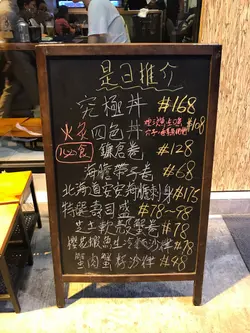 是日推介
究極丼 #168
火炙四色丼 #168
鐮倉卷 #128
海膽帶子卷 #68
北海道安安海膽刺身 #175
特選壽司盛 #78-98
芝士軟殼蟹卷 #78
櫻花蝦魚生沙律 #78
蟹肉蟹籽沙律 #48